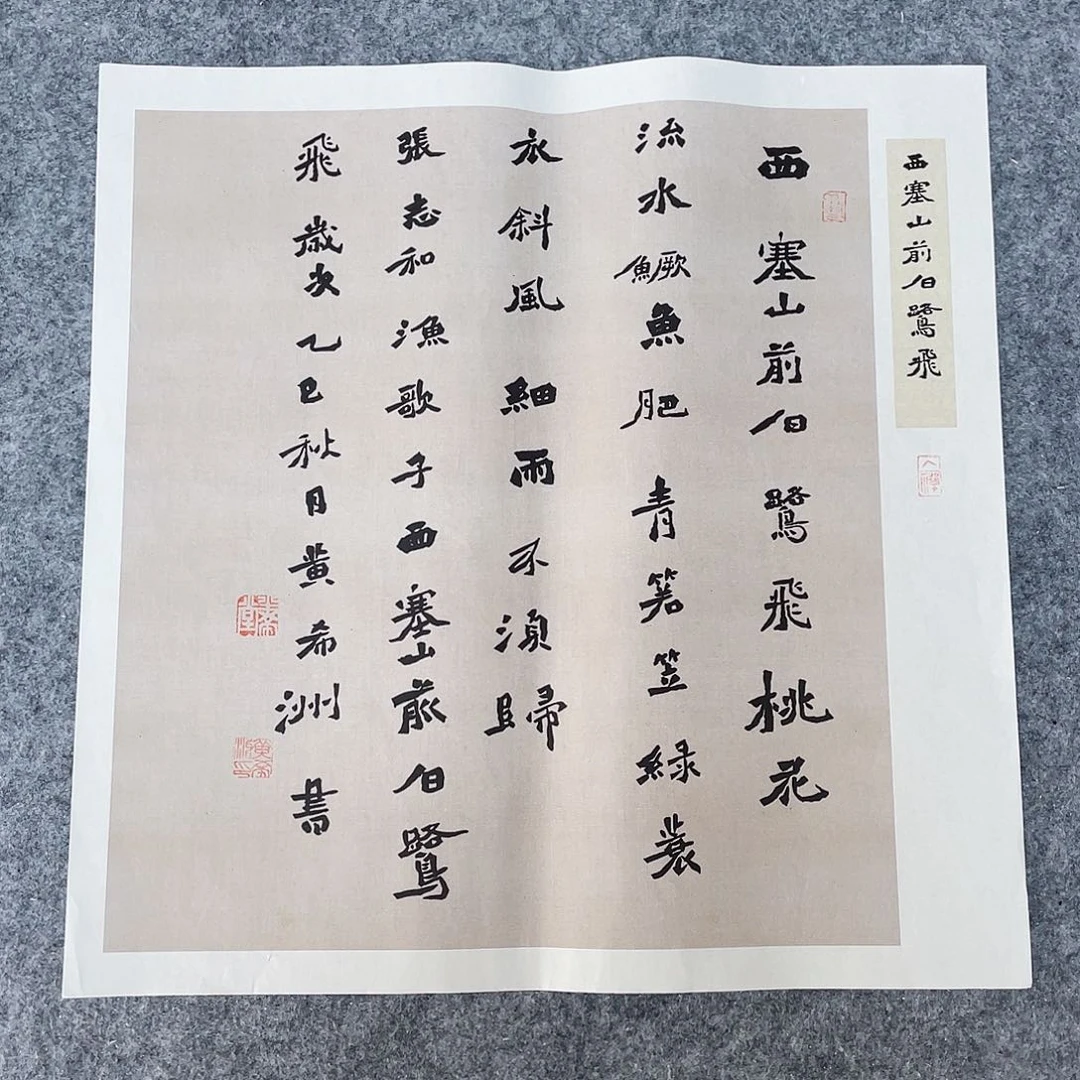 西塞山前白鷺飛
西塞山前白鷺飛桃花
流水鱖魚肥青箬笠緑蓑
衣斜風細雨不須歸
張志和漁歌子西塞山前白鷺
飛歲次乙巳秋月黄希洲書